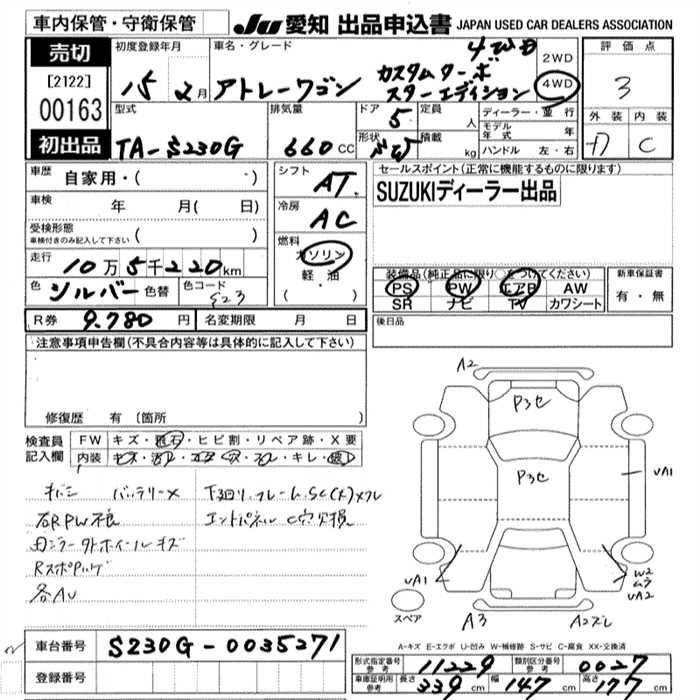 車内保管・守衛保管
JU 愛知 出品申込書 JAPAN USED CAR DEALERS ASSOCIATION
売切
[2122]
00163
初出品
初度登録年月
15 2月
車名・グレード
アトレーワゴン
4WD
カスタムターボ
スターエディション
2WD
4WD
評価点
3
外装 内装
C
型式
TA-S230G
排気量
660 CC
ドア
5
形状
定員
人
積載
kg
ディーラー・並行
モデル年式 年
ハンドル 左・右
車歴
自家用・( )
車検 年 月( 日)
受検形態
車検付きのみ記入して下さい ( )
走行
10万5千220km
色
シルバー 色替
色コード
S23
シフト
AT
冷房
AC
燃料
ガソリン
軽・油
( )
セールスポイント(正常に機能するものに限ります)
SUZUKIディーラー出品
装備品(純正品に限り○をつけてください)
PS PW エアB AW
SR ナビ TV カワシート
新車保証書
有・無
後日品
R券 9.780円 名変期限 月 日
注意事項申告欄(不具合内容等は具体的に記入して下さい)
修復歴 有 (箇所 )
検査員
記入欄
FW キズ・飛石・ヒビ割・リペア跡・X要
内装
キレ
バッテリーX
下回り、フレームSC(大)Xフレ
右RPW不良
エンドパネル C穴欠損
ミラー外ホイールキズ
各AU
A2
P3セ
P3セ
UA1
UA1
W2
ムラ
UA2
スペア
A3
A2ズレ
A-キズ E-エクボ U-凹み W-補修跡 S-サビ C-腐食 XX-交換済
車台番号 S230G-0035271
登録番号
形式指定番号
参考
11229
類別区分番号
参考
0027
車庫証明用
参考
長さ 339cm 幅 147cm 高さ 177cm